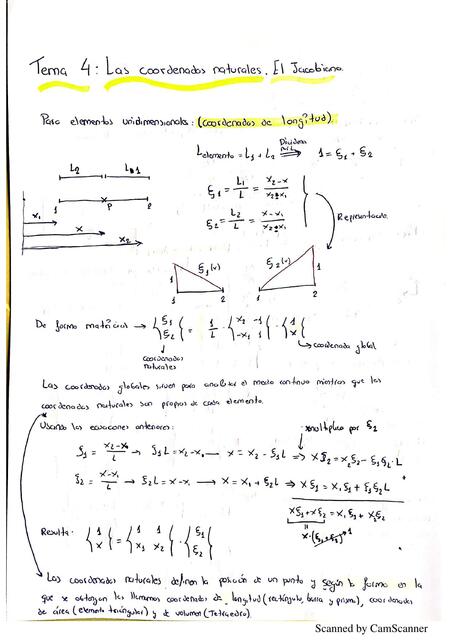 Tema 4: Las coordenadas naturales. El Jacobiano.
Para elementos unidimensionales: (coordenadas de longitud).
L2 L1
1 P 2
x1
x
x2
Lelemento = L1 + L2 ⟹ 1 = ξ1 + ξ2
ξ1 = L1/L = (x2-x)/(x2-x1)
ξ2 = L2/L = (x-x1)/(x2-x1)
Representado
ξ1(x) ξ2(x)
1 1
1 2 1 2
De forma matricial → {ξ1 ξ2} = 1/L · {x2 -1 -x1 1} · {1 x}
coordenadas naturales
coordenada global
Las coordenadas globales sirven para analizar el medio continuo mientras que las
coordenadas naturales son propias de cada elemento.
Usando las ecuaciones anteriores:
multiplico por ξ2
ξ1 = (x2-x)/L → ξ1L = x2-x → x = x2 - ξ1L ⇒ xξ2 = x2ξ2 - ξ1ξ2·L
ξ2 = (x-x1)/L → ξ2L = x-x1 → x = x1 + ξ2L ⇒ xξ1 = x1ξ1 + ξ1ξ2L
xξ1 + xξ2 = x1ξ1 + x2ξ2
x·(ξ1+ξ2) 1
Resulta: {1 x} = {1 1 x1 x2} · {ξ1 ξ2}
Las coordenadas naturales definen la posición de un punto y según la forma en la
que se obtengan las llamamos coordenadas de longitud (rectángulo, barra y prisma), coordenadas
de área (elemento triángular) y de volumen (Tetraedro).
Scanned by CamScanner